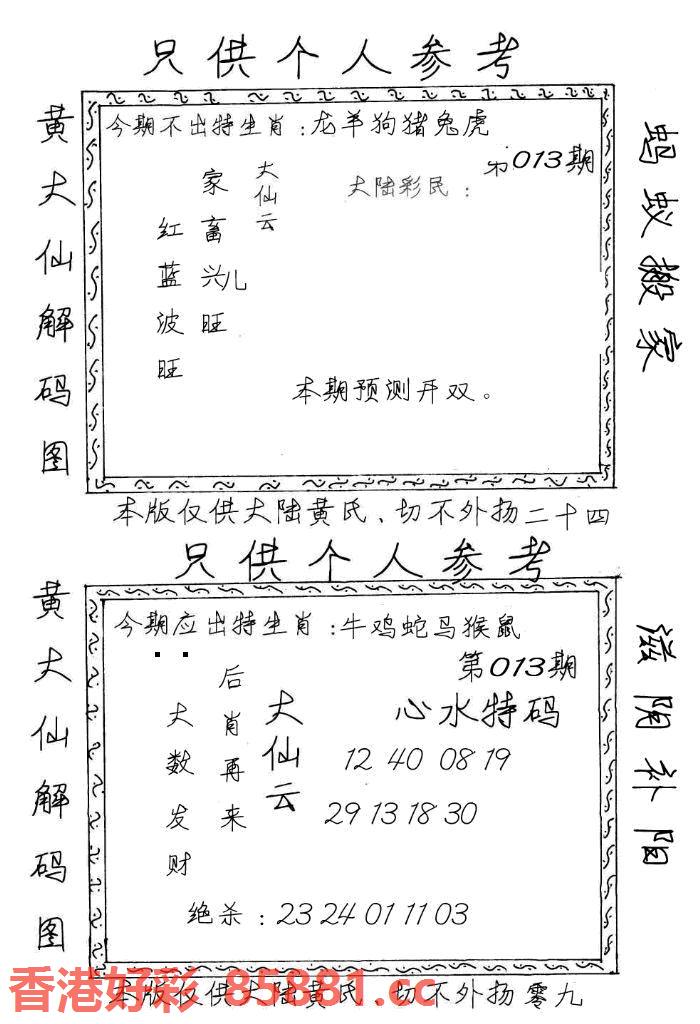 只供个人参考
黄大仙解码图
今期不出特生肖:龙羊狗猪兔虎
013期
大仙云
大陆彩民:
家畜兴旺
儿
红蓝波旺
本期预测开双。
蚂蚁搬家
本版仅供大陆黄氏、切不外扬二十四
只供个人参考
黄大仙解码图
今期应出特生肖:牛鸡蛇马猴鼠
第013期
大仙云
后肖再来
大数发财
心水特码
12 40 08 19
29 13 18 30
绝杀:23 24 01 11 03
滋阴补阳
本版仅供大陆黄氏、切不外扬零九
香港好彩 85881.cc